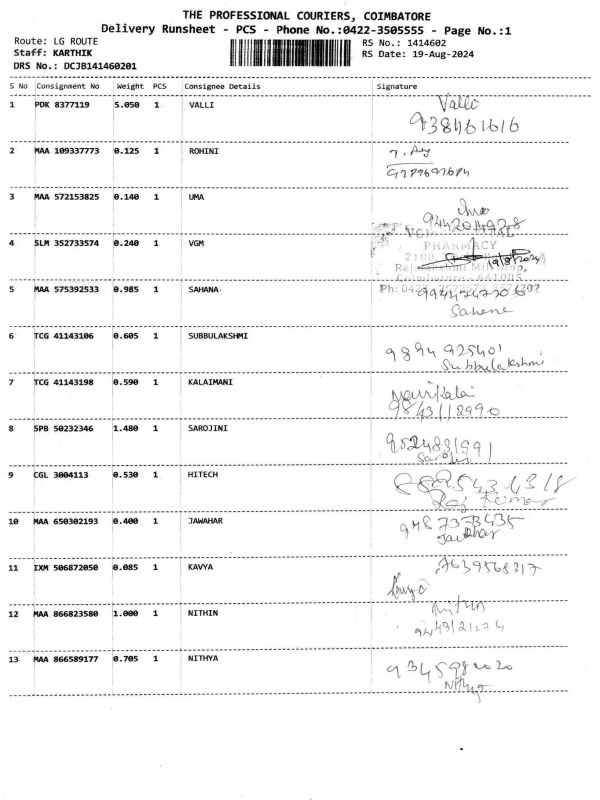 THE PROFESSIONAL COURIERS, COIMBATORE
Delivery Runsheet - PCS - Phone No.:0422-3505555 - Page No.:1
Route: LG ROUTE RS No.: 1414602
Staff: KARTHIK RS Date: 19-Aug-2024
DRS No.: DCJB141460201
S No Consignment No Weight PCS Consignee Details Signature
1 PDK 8377119 5.050 1 VALLI Valli
938461616
2 MAA 109337773 0.125 1 ROHINI
3 MAA 572153825 0.140 1 UMA Uma
9442014928
4 SLM 352733574 0.240 1 VGM VGM HOSPITAL
PHARMACY
2100, 19/8/2024
Coimbatore - 641005
5 MAA 575392533 0.985 1 SAHANA Ph: 0422
Sahana
6 TCG 41143106 0.605 1 SUBBULAKSHMI 9894 925401
Subbulakshmi
7 TCG 41143198 0.590 1 KALAIMANI
9843112990
8 SPB 50232346 1.480 1 SAROJINI 9524831991
Sarojini
9 CGL 3004113 0.530 1 HITECH
Raj Kumar
10 MAA 650302193 0.400 1 JAWAHAR 9487373435
Jawahar
11 IXM 506872050 0.085 1 KAVYA 7639568317
12 MAA 866823580 1.000 1 NITHIN Nithin
13 MAA 866589177 0.705 1 NITHYA 9345982020
Nithya